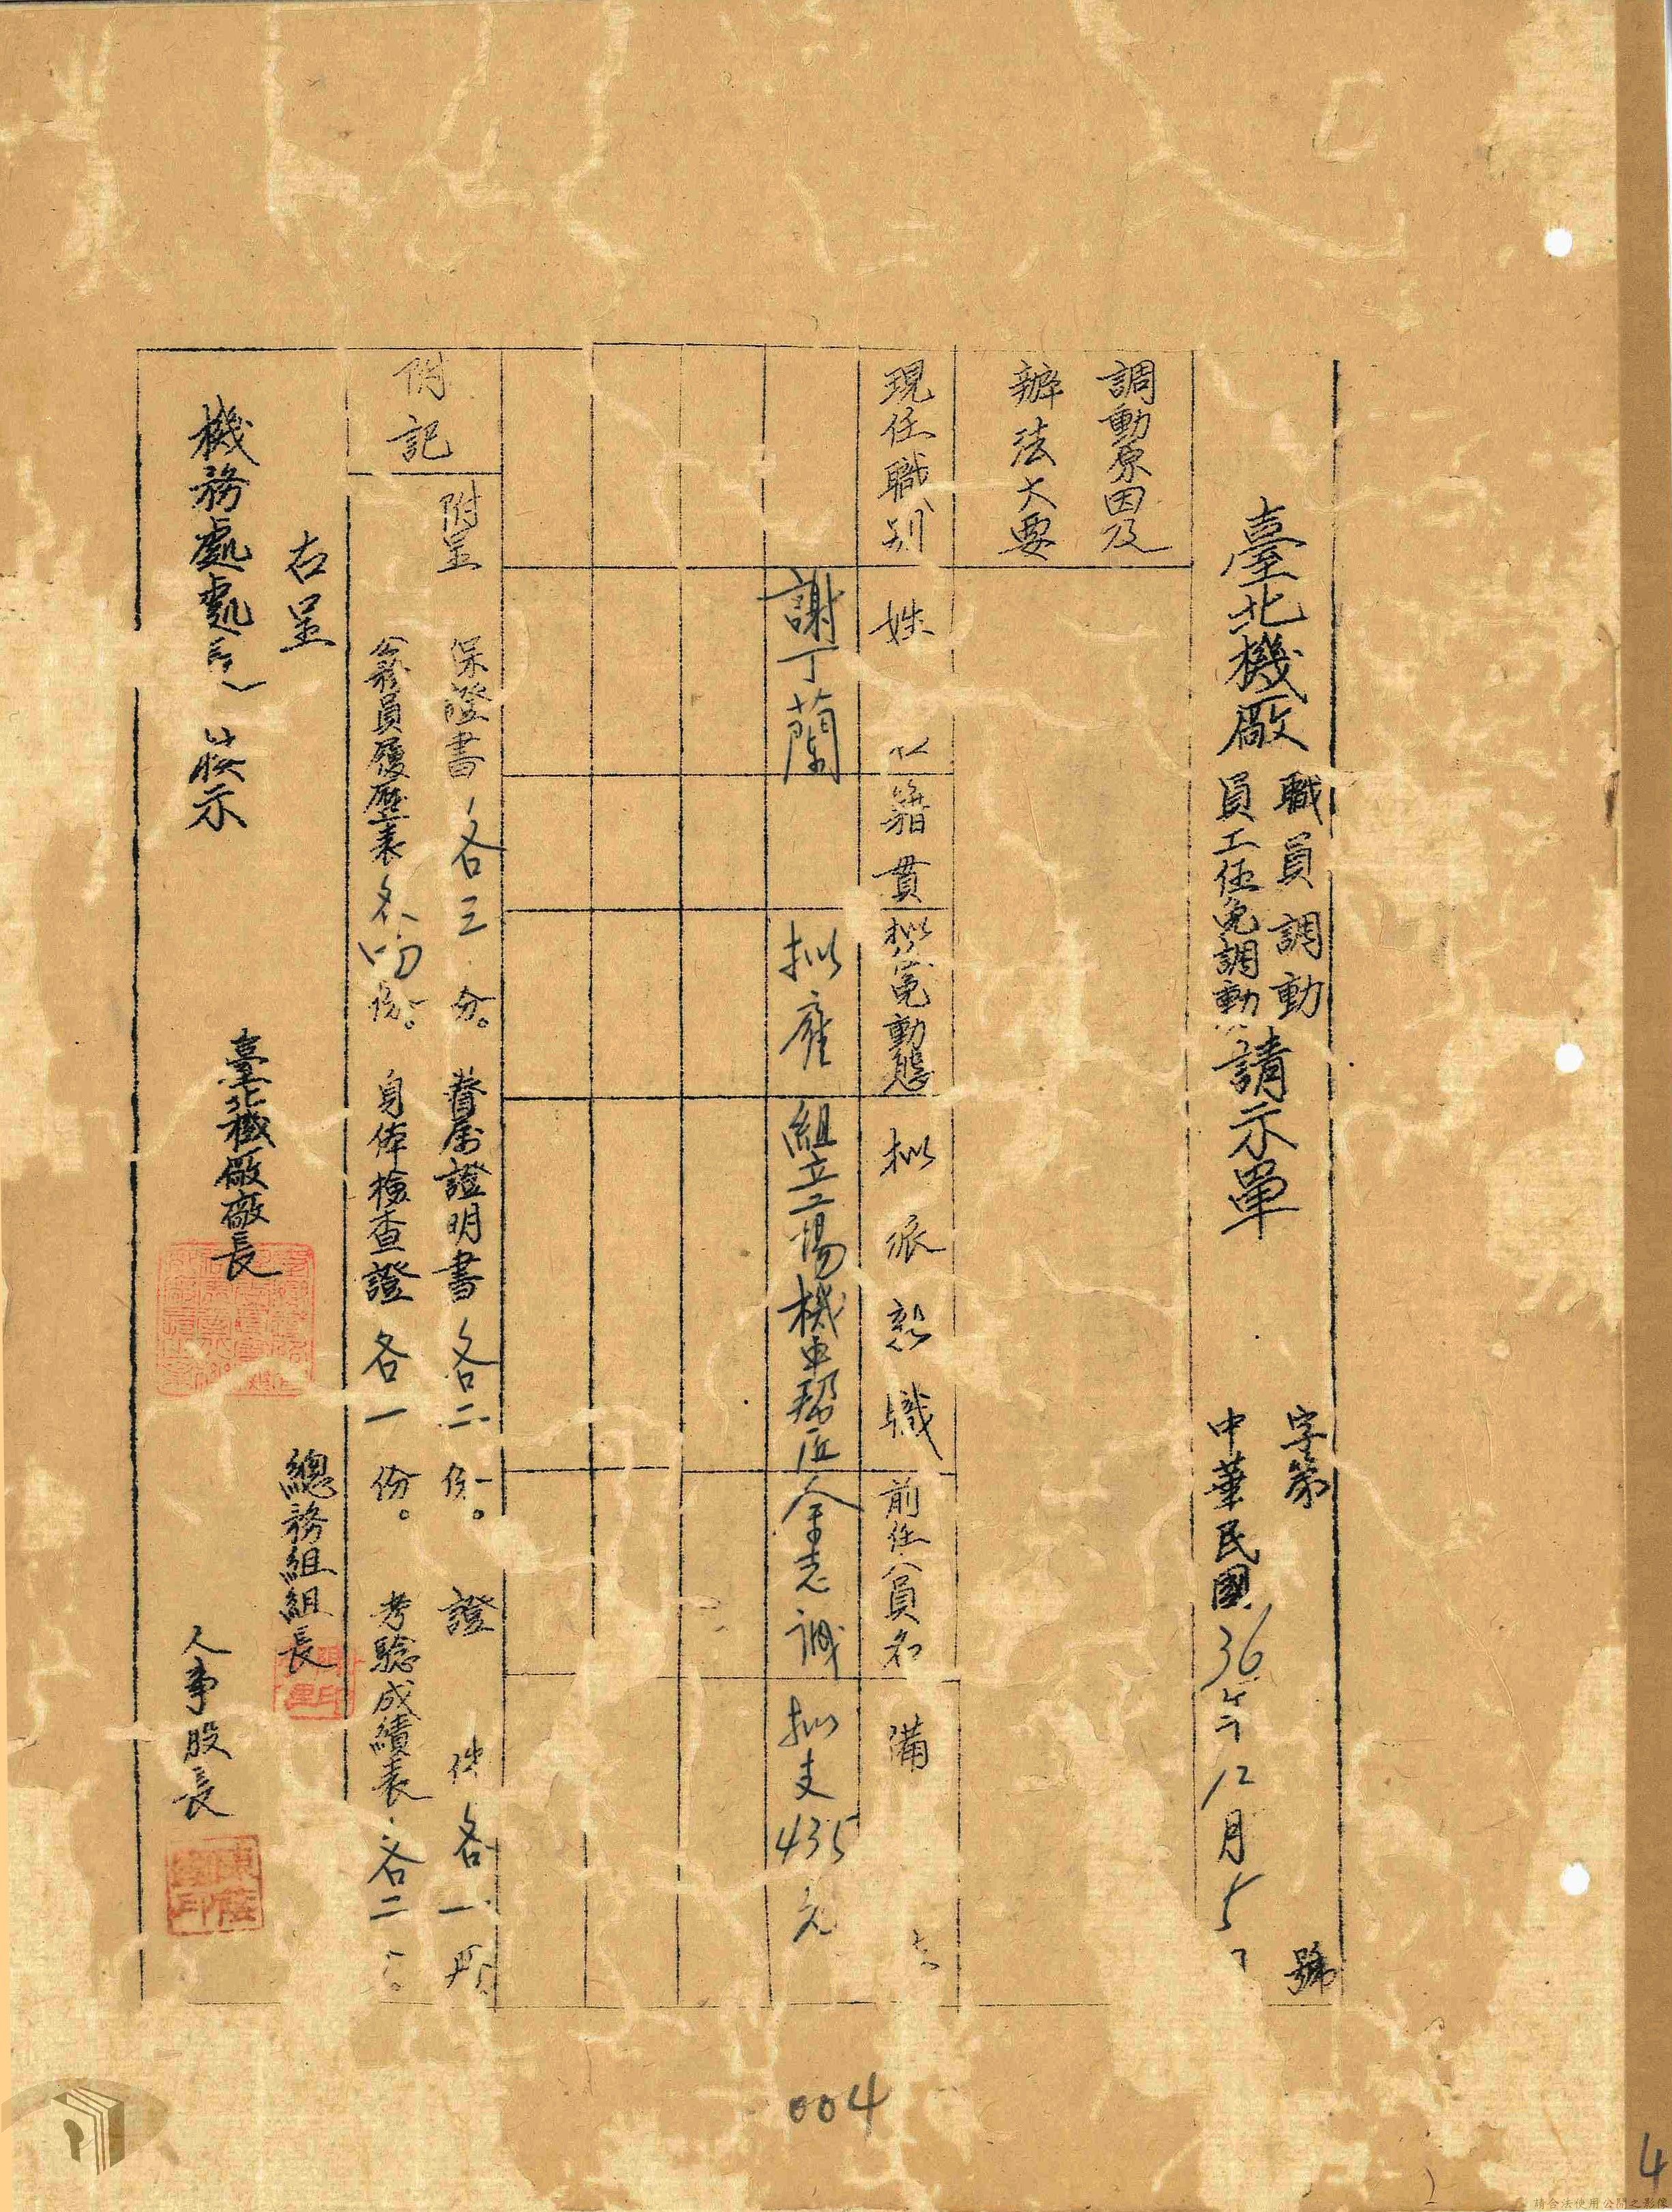 字第 號
臺北機廠
職員調動
員工任免調動
請示單
中華民國36年12月5
調動原因及
辦法大要
現任職別
姓
籍貫
拟免動態
拟派職
前任人員名
備
謝丁蘭
拟雇
組立工場機車幫匠
余志誠
拟支435元
附記
附呈
保證書各三份。
眷屬證明書各二份。
證件各一
員履歷表各四份。
身体檢查證各一份。
考驗成績表各二
右呈
機務處處長
示
臺北機廠廠長
總務組組長
人事股長
004
4
請合法使用公開之影像